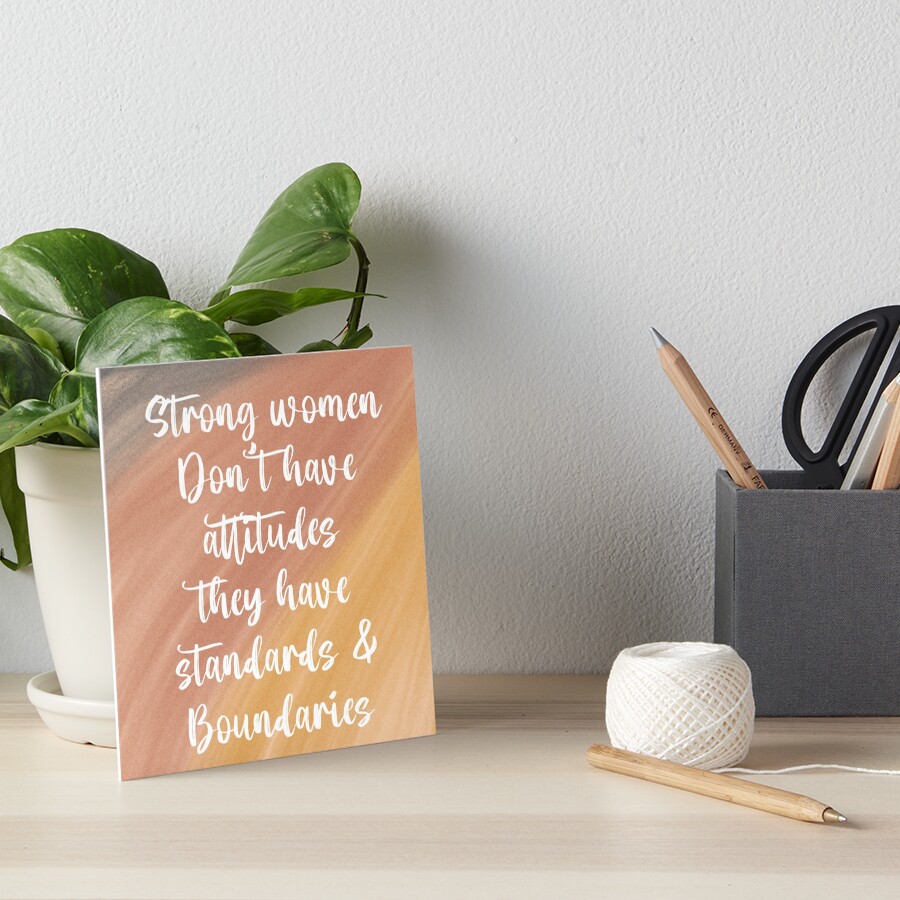 Strong women
Don't have
attitudes
they have
standards &
Boundaries
GERMANY